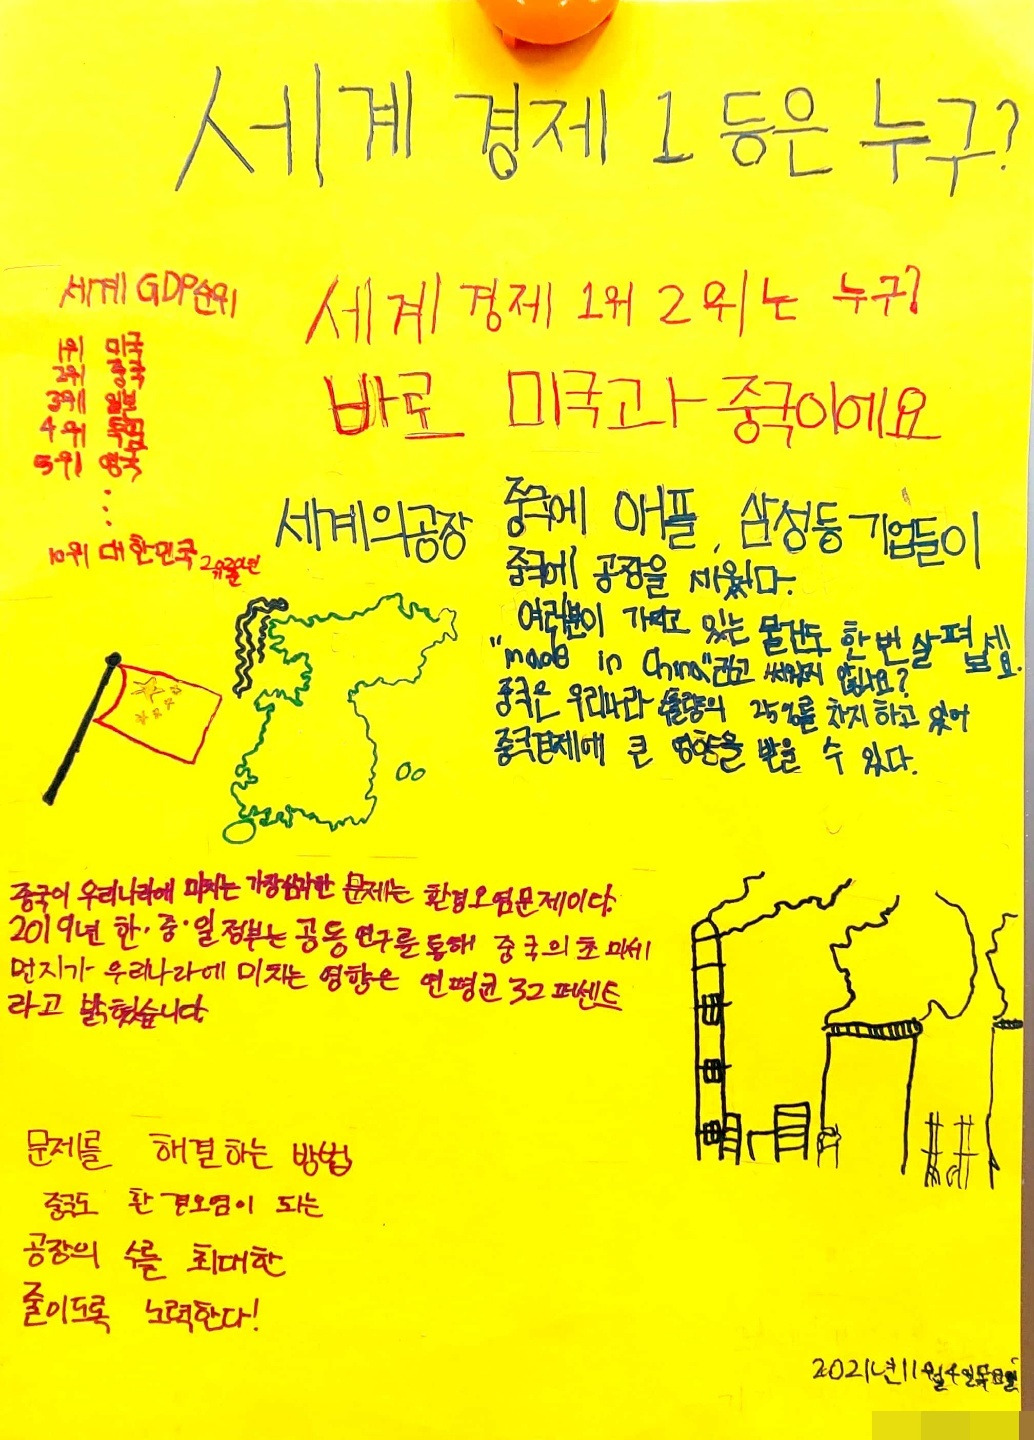 세계 경제 1등은 누구?
세계 GDP순위
1위 미국
2위 중국
3위 일본
4위 독일
5위 영국
10위 대한민국 2020년
세계 경제 1위 2위는 누구?
바로 미국과 중국이에요
세계의공장
중국에 애플, 삼성등 기업들이
중국에 공장을 세웠다.
여러분이 가지고 있는 물건도 한번 살펴보세요.
"made in China"라고 써있지 않나요?
중국은 우리나라 수출량의 25%를 차지하고 있어
중국경제에 큰 영향을 받을 수 있다.
중국이 우리나라에 미치는 가장심각한 문제는 환경오염문제이다.
2019년 한·중·일정부는 공동연구를 통해 중국의초미세
먼지가 우리나라에 미치는 영향은 연평균 32퍼센트
라고 밝혔습니다
문제를 해결하는 방법
중국도 환경오염이 되는
공장의 수를 최대한
줄이도록 노력한다!
2021년11월4일목요일